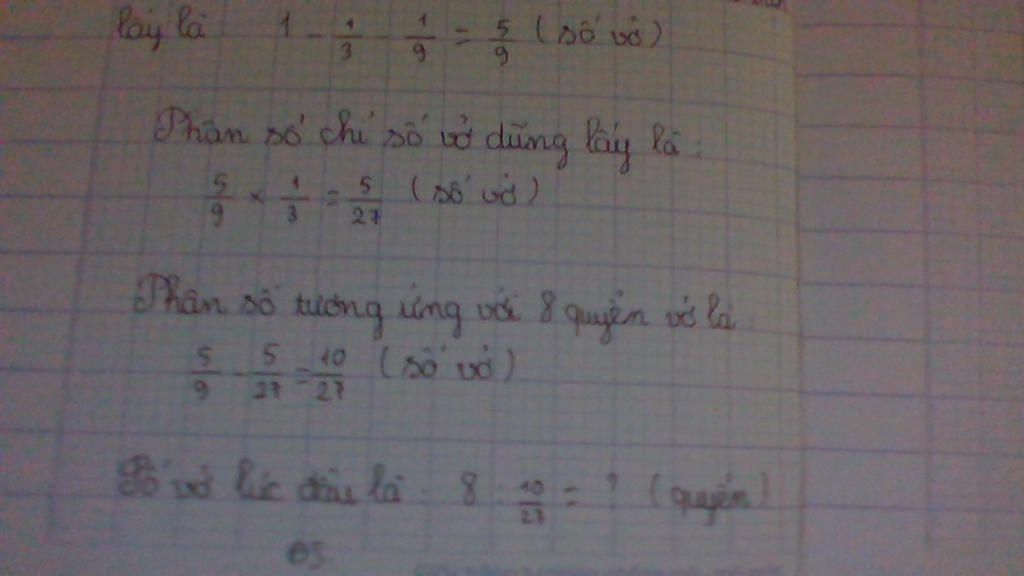 lấy là 1 - 1/3 - 1/9 = 5/9 (số vở)
Phân số chỉ số vở dũng lấy là:
5/9 × 1/3 = 5/27 (số vở)
Phân số tương ứng với 8 quyển vở là:
5/9 - 5/27 = 10/27 (số vở)
Số vở lúc đầu là: 8 : 10/27 = ? (quyển)
ĐS